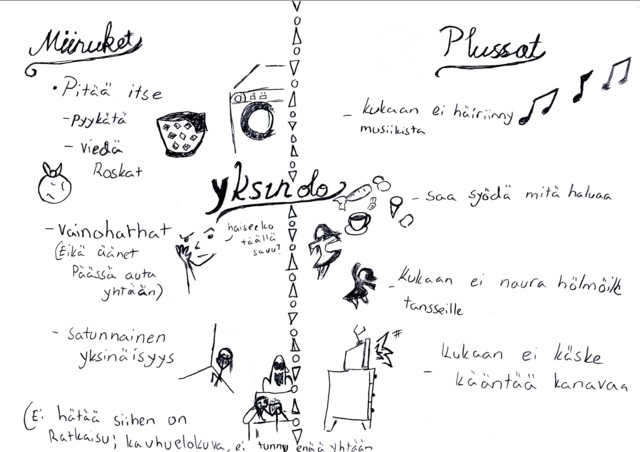 Miinukset
• Pitää itse
- pyykätä
- viedä
Roskat
yksinolo
- vainoharhat
(Eikä äänet
Päässä auta
yhtään)
haiseeko
täällä
savu?
- satunnainen
yksinäisyys
(Ei hätää siihen on
Ratkaisu; kauhuelokuva, ei tunnu enää yhtään
Plussat
- kukaan ei häiriinny
musiikista
- saa syödä mitä haluaa
- Kukaan ei naura hölmöille
tansseille
- Kukaan ei käske
kääntää kanavaa